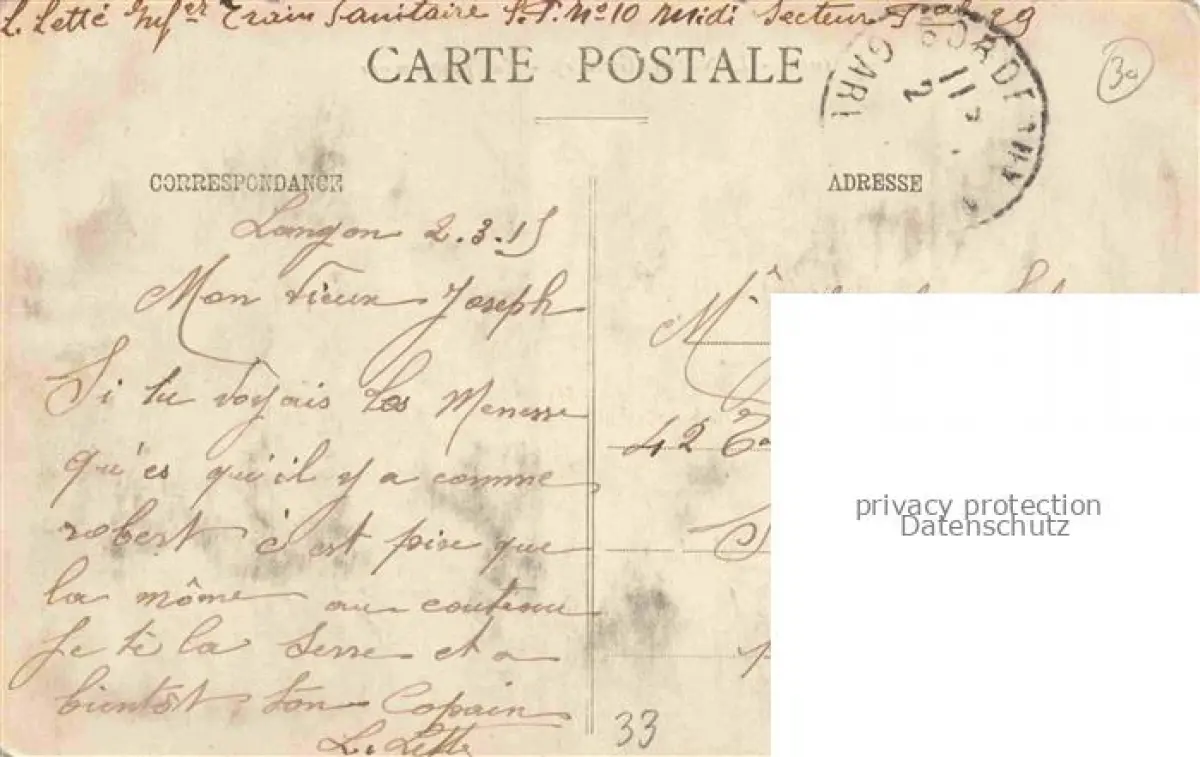 L. Letté Infer Train Sanitaire S.P. No 10 Midi Secteur Pal 29
CARTE POSTALE
30
BORDEAUX
GARE
11
2
CORRESPONDANCE
ADRESSE
Langon 2.3.15
Mon vieux Joseph
Si tu voyais les Menesse
qu'es qu'il y a comme
robert c'est pire que
la môme au couteau
Je te la serre et a
bientôt ton Copain
L. Letté
Mr
42
33
privacy protection
Datenschutz